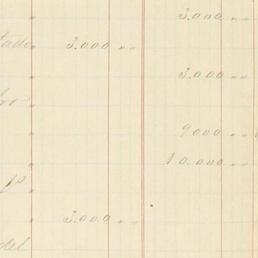 3.000 „ „
3.000 „ „
3.000 „ „
9000 „ „
10.000 „ „
3.000 „ „
del